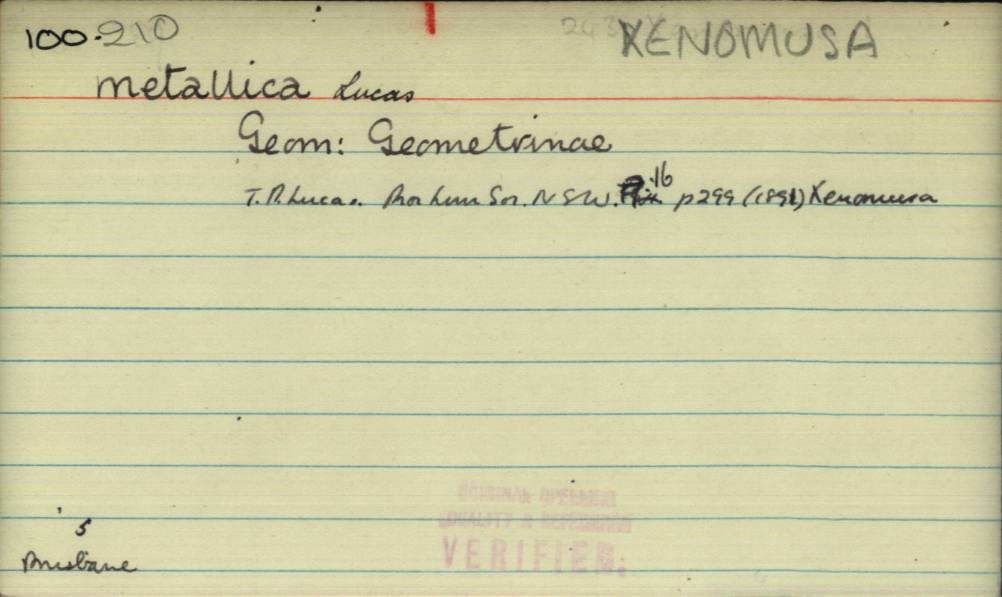 100.210 XENOMUSA
metallica Lucas
Geom: Geometrinae
T.P. Lucas. Proc Linn Soc. NSW. 16 p299 (1891) Xenomusa
ORIGINAL SPELLING
LOCALITY & REFERENCE
VERIFIED.
5
Brisbane